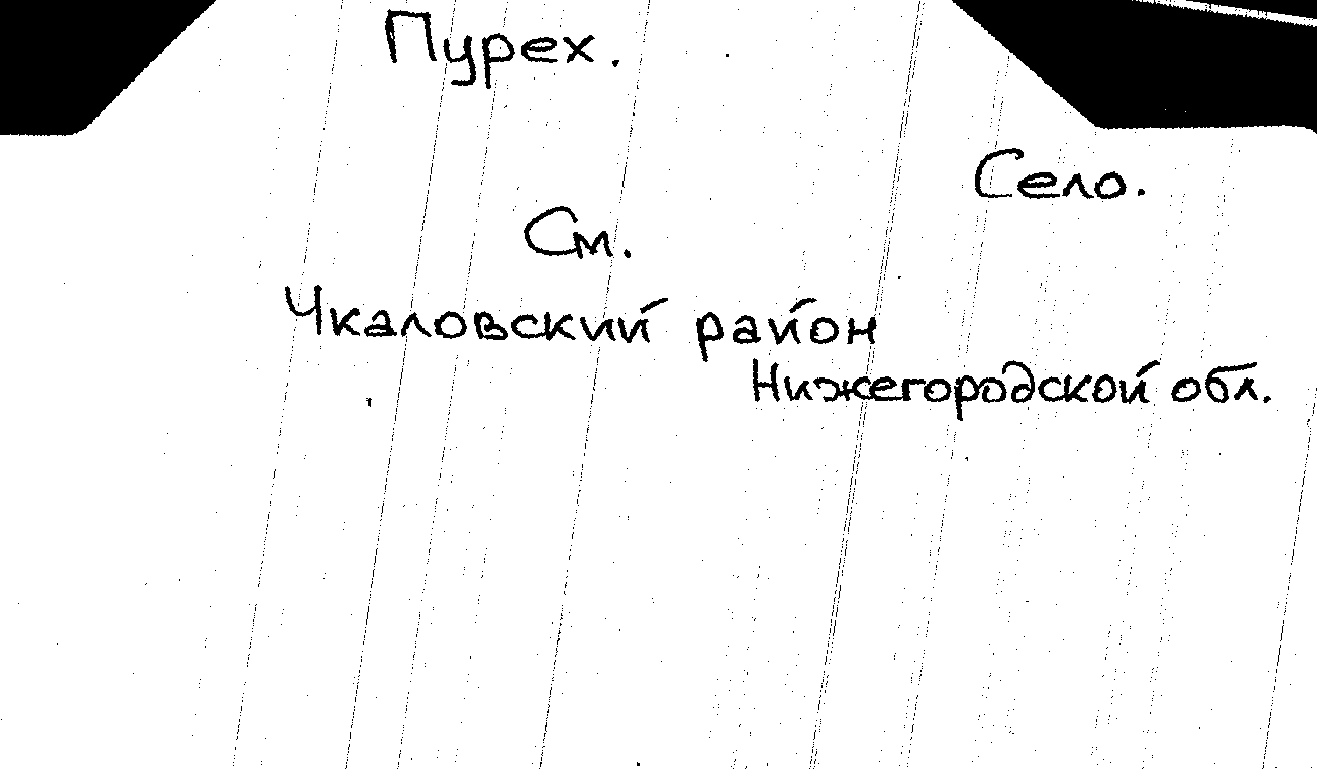 Пурех.
Село.
См.
Чкаловский район
Нижегородской обл.